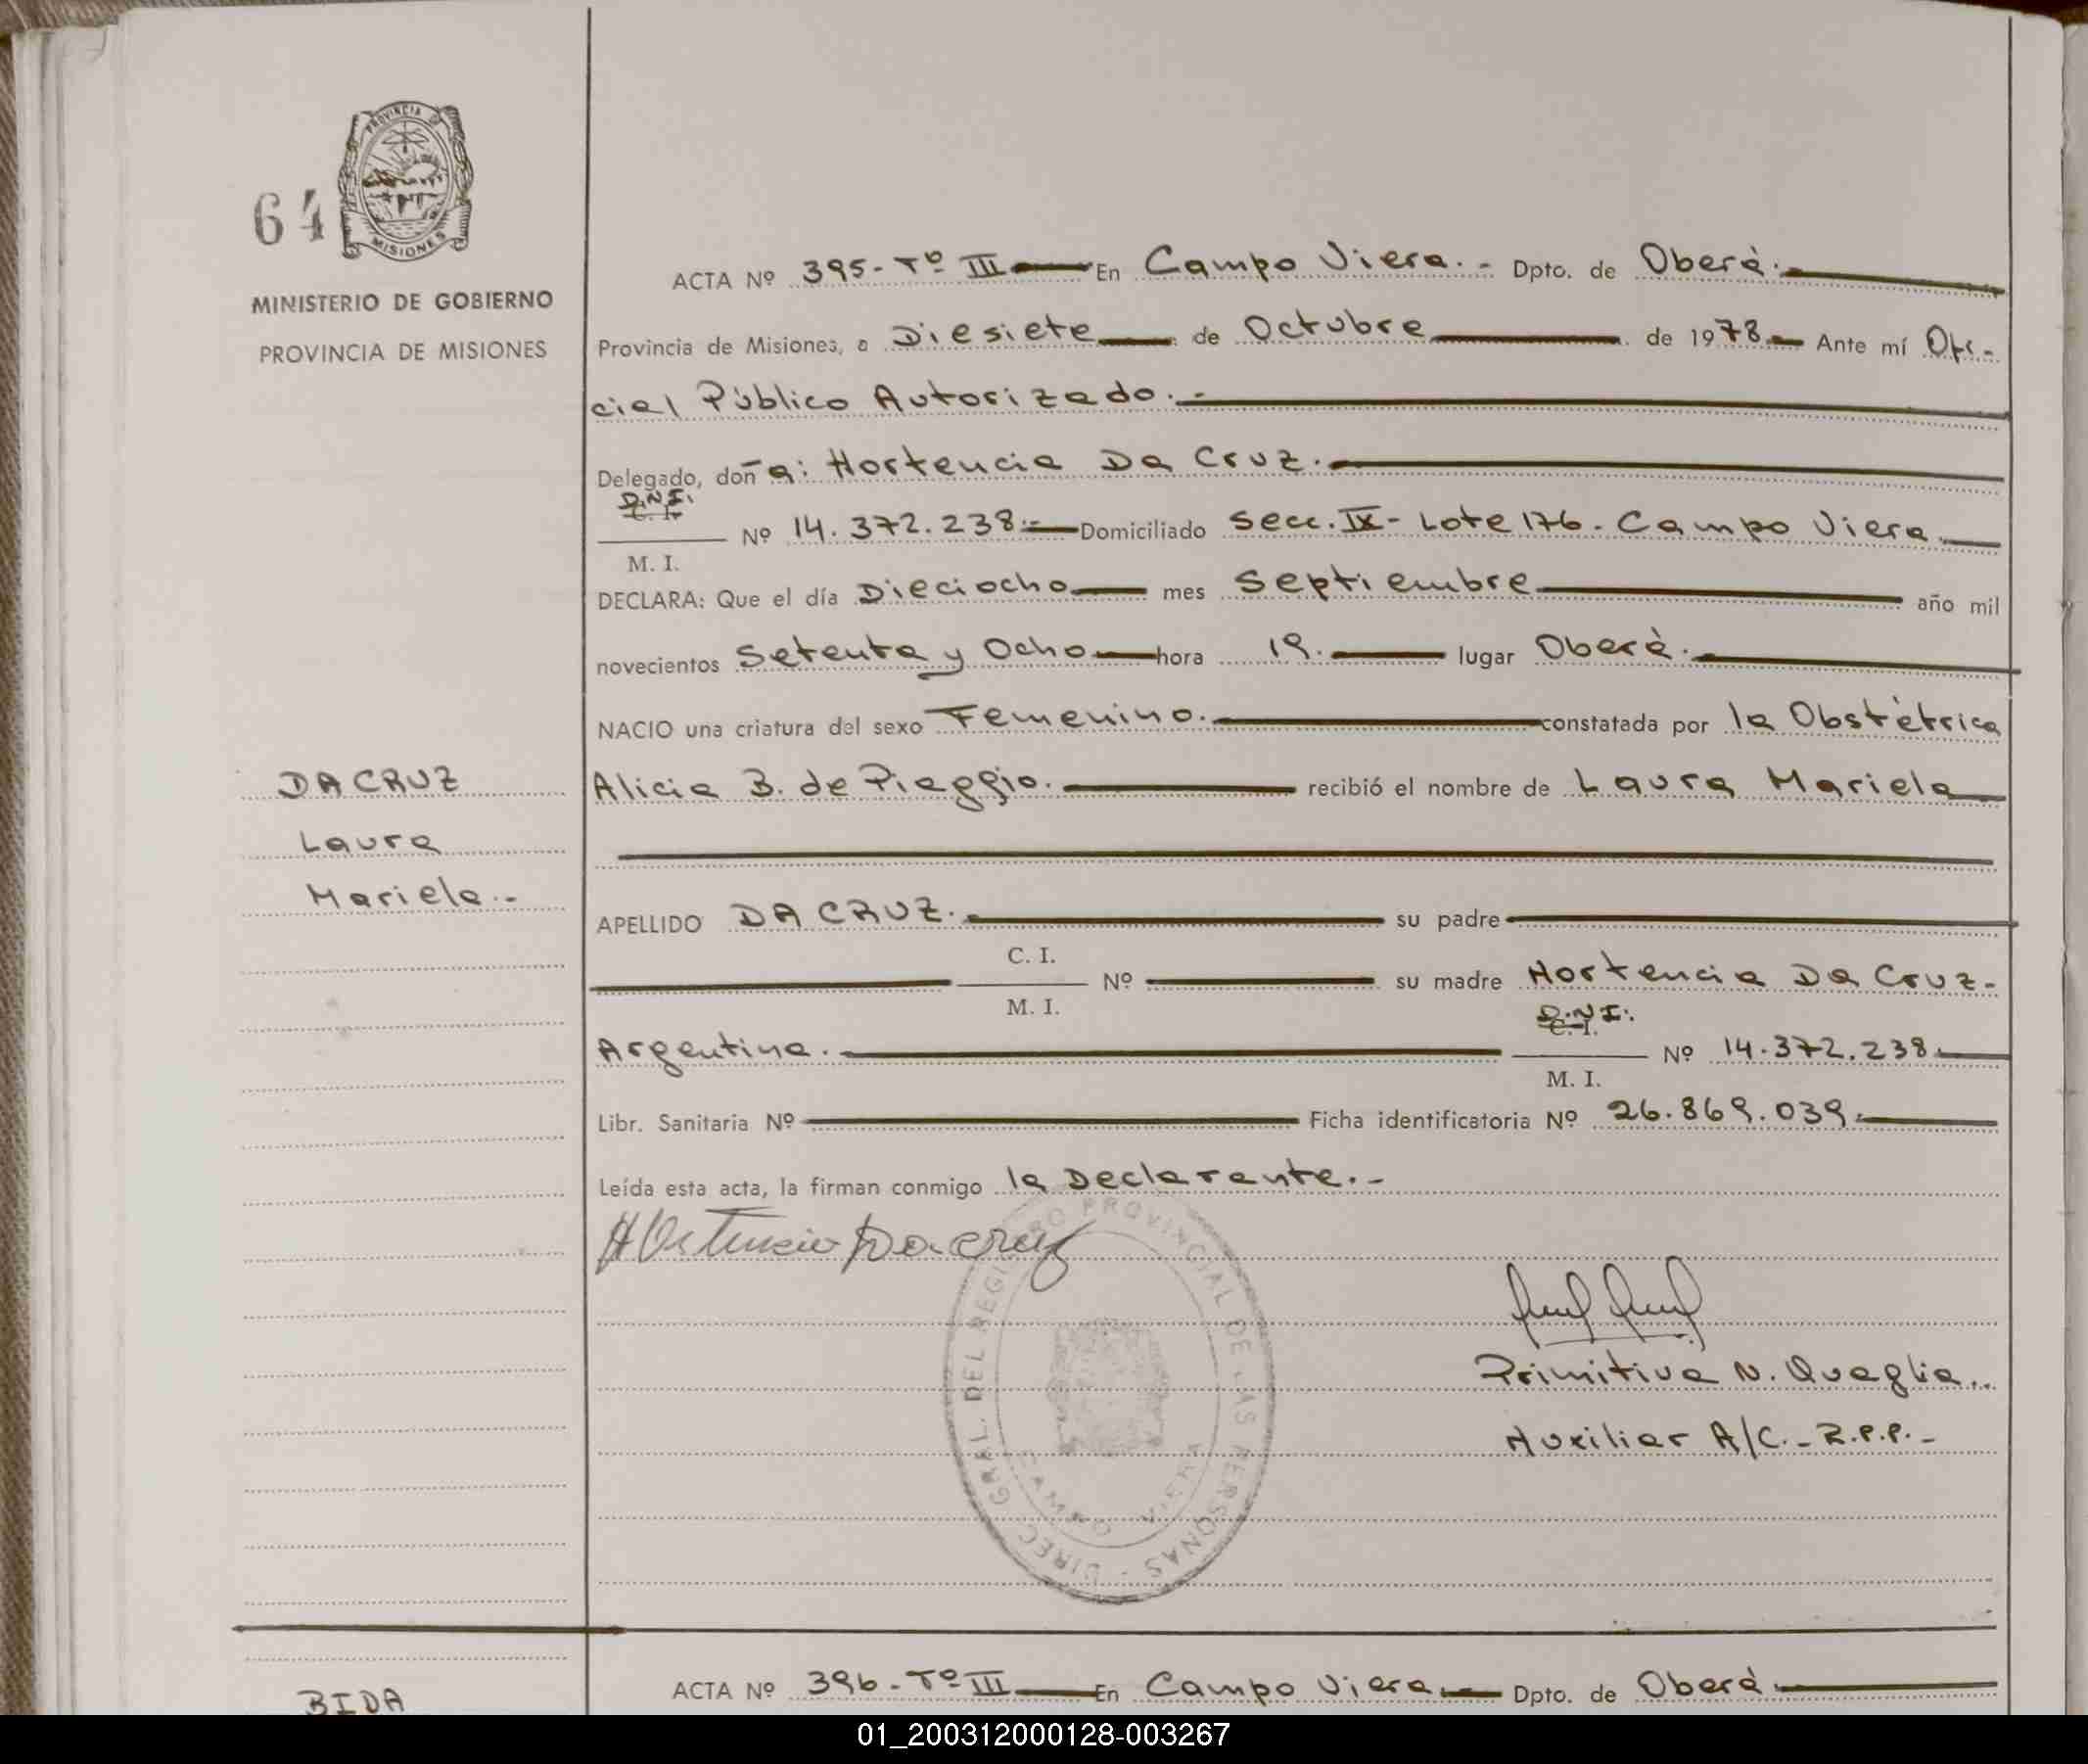 64
PROVINCIA DE
MISIONES
MINISTERIO DE GOBIERNO
PROVINCIA DE MISIONES
DA CRUZ
Laura
Mariela.-
ACTA Nº 395- Tº III En Campo Viera.- Dpto. de Oberà.
Provincia de Misiones, a Diesiete de Octubre de 1978 Ante mí Ofi-
cial Pùblico Autorizado.-
Delegado, doña: Hortencia Da Cruz.
D.N.I.
C. I.
Nº 14.372.238.- Domiciliado Secc. IX- Lote 176. Campo Viera.
M. I.
DECLARA: Que el día Dieciocho mes Septiembre año mil
novecientos Setenta y Ocho hora 19. lugar Oberà.
NACIO una criatura del sexo Femenino. constatada por la Obstètrica
Alicia B. de Piaggio. recibió el nombre de Laura Mariela
APELLIDO DA CRUZ. su padre
C. I.
Nº su madre Hortencia Da Cruz-
M. I.
D.N.I.
C. I.
Argentina. Nº 14.372.238.
M. I.
Libr. Sanitaria Nº Ficha identificatoria Nº 26.869.039.
Leída esta acta, la firman conmigo la Declarante.-
Hortencia Da cruz
DIREC. GRAL. DEL REGISTRO PROVINCIAL DE LAS PERSONAS -
CAMPO VIERA
Primitiva N. Quaglia..
Auxiliar A/C.- R.P.P.-
BIDA
ACTA Nº 396- Tº III En Campo Viera. Dpto. de Oberà.
01_200312000128-003267